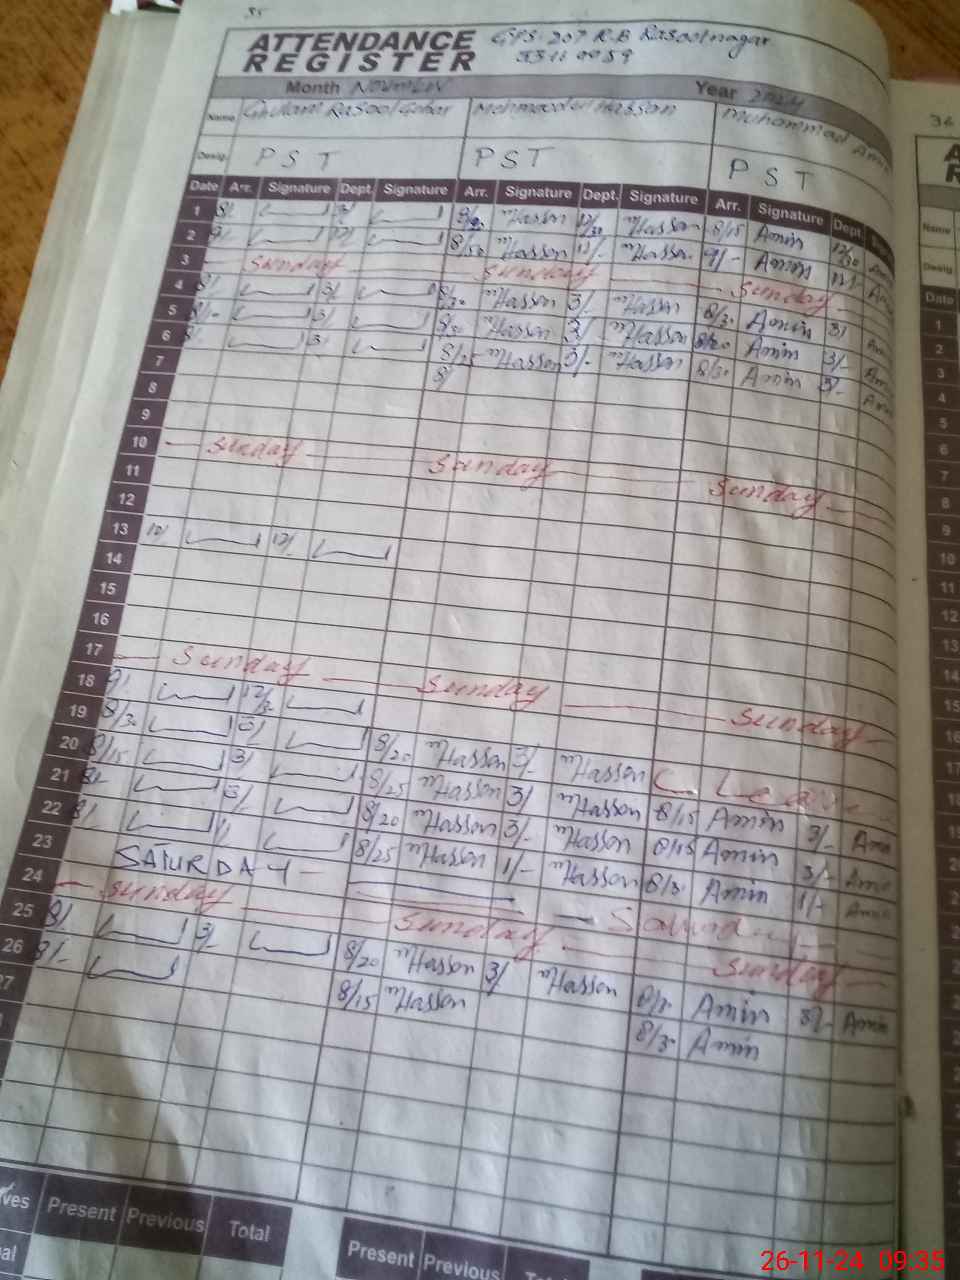 35
ATTENDANCE REGISTER
GPS 207 R.B Rasoolnagar
Month
Year 2024
Name Ghulam Rasool Mehmood ul Hassan Muhammad Amin
Desig. PST PST PST
Date Arr. Signature Dept. Signature Arr. Signature Dept. Signature Arr. Signature Dept.
1 8/ Hassan 12/30 Hassan 8/15 Amin 12/30
2 9/ 12/ 8/50 Hassan 12/- Hassan 9/- Amin
3 Sunday Sunday Sunday
4 8/ 3/ 8/30 Hassan 3/- Hassan 8/30 Amin 3/
5 8/- 3/ 8/30 Hassan 3/- Hassan Amin 3/-
6 8/ 3/ Hassan 3/- Hassan 8/30 Amin 3/-
7 8/
8
9
10 Sunday Sunday Sunday
11
12
13 10/ 12/
14
15
16
17 Sunday Sunday Sunday
18 9/ 12/30
19 8/30 3/ 8/20 Hassan 3/- Hassan C. Leave
20 8/15 3/ 8/25 Hassan 3/ Hassan 8/15 Amin 3/- Amin
21 8/- 3/ 8/20 Hassan 3/- Hassan 8/15 Amin 3/- Amin
22 8/ 1/ 8/25 Hassan 1/- Hassan 8/30 Amin 1/- Amin
23 SATURDAY
24 Sunday Sunday Sunday
25 8/ 3/- 8/20 Hassan 3/ Hassan Amin 3/- Amin
26 8/- 8/15 Hassan 8/30 Amin
27
Present Previous Total
Present Previous
36
Name
Desig.
Date
1
2
3
4
5
6
7
8
9
10
11
12
13
14
15
16
17
26-11-24 09:35